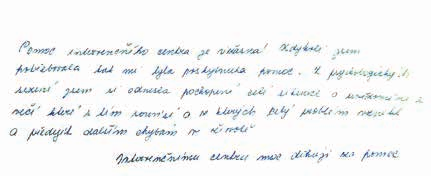 Pomoc intervenčního centra je vzácná! Kdykoli jsem
potřebovala tak mi byla poskytnuta pomoc. Z psychologických
sezení jsem si odnesla pochopení celé situace a uvědomění
věcí které s tím souvisí a ze kterých celý problém vznikl
a předejít dalším chybám v životě
Intervenčnímu centru moc děkuji za pomoc